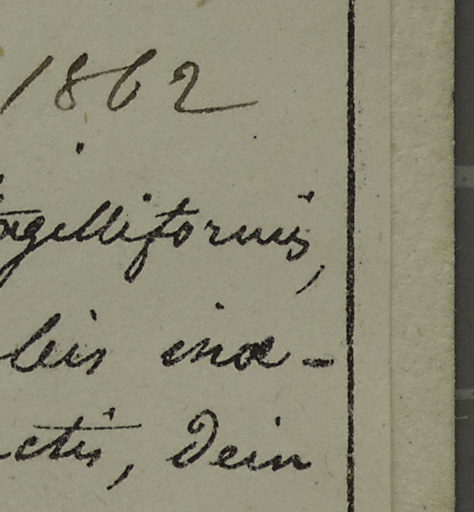 1862
flagelliformis,
leis inæ-
ctis, Dein